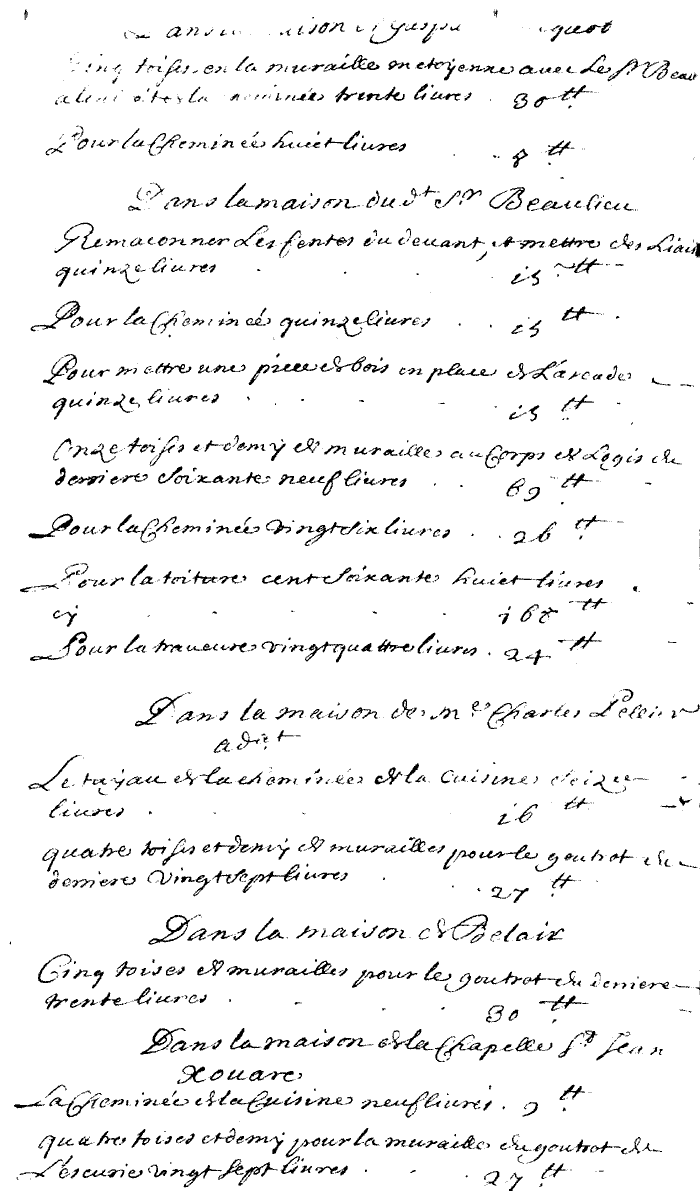 Dans la maison
Cinq toises en la muraille metoyenne avec Le Sr Beau
trente livres . 30 tt
Pour la Cheminée huict livres . . 8 tt
Dans la maison du dt Sr Beaulieu
Remaconner Les fentes du devant, et mettre des Liais
quinze livres . . 15 tt
Pour la Cheminée quinze livres . . 15 tt .
Pour mettre une piece de bois en place de L'arcade
quinze livres . . . 15 tt
Onze toises et demy de murailles au Corps de Logis du
derriere Soixante neuf livres . . 69 tt
Pour la Cheminée vingt six livres . . 26 tt
Pour la toiture cent Soixante huict livres .
cy . . . 168 tt
Pour la traveure vingt quattre livres . 24 tt
Dans la maison de me Charles
adt
Le tuyau de la cheminée de la Cuisine Seize
livres . . 16 tt
quatre toises et demy de murailles pour le goutrot du
derriere Vingt Sept livres . . 27 tt
Dans la maison de Belair
Cinq toises de murailles pour le goutrot du derriere
trente livres . . . 30 tt
Dans la maison de la Chapelle St Jean
Xouare
La Cheminée de la Cuisine neuf livres . 9 tt
quatre toises et demy pour la muraille du goutrot de
L'escurie vingt Sept livres . . 27 tt